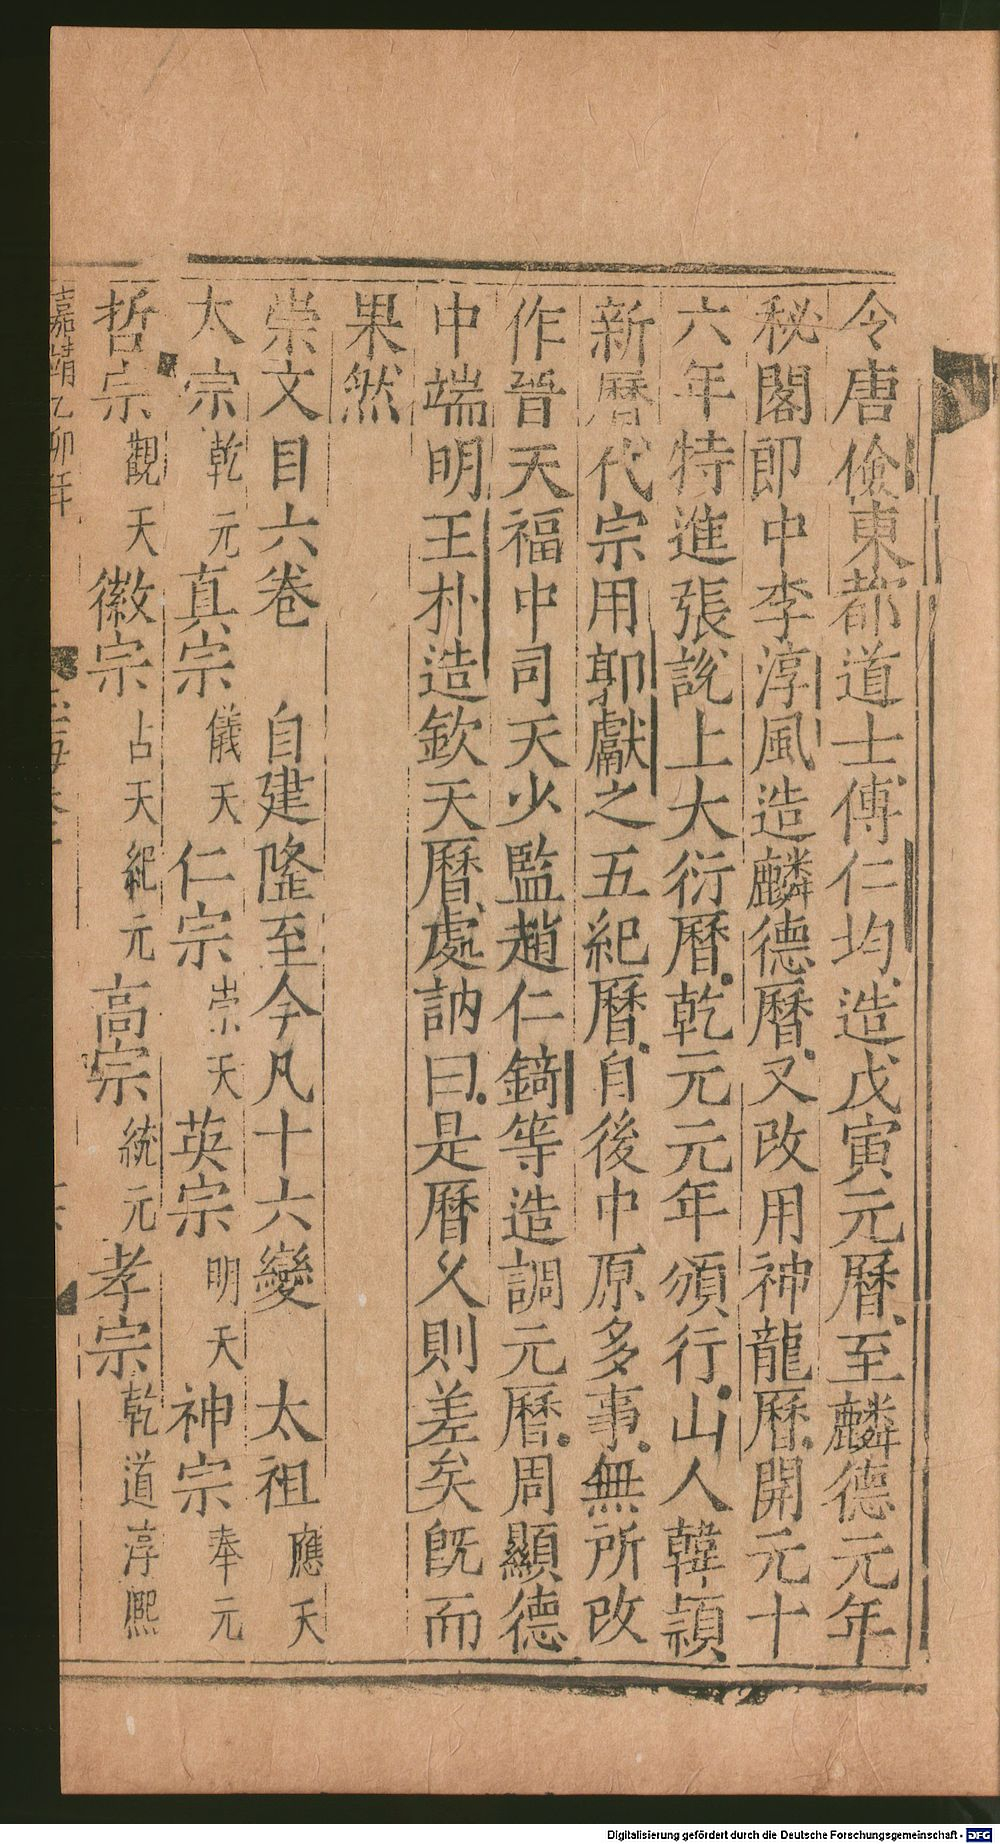 令唐儉東都道士傅仁均造戊寅元曆至麟德元年
秘閣郎中李淳風造麟德曆又改用神龍曆開元十
六年特進張說上大衍曆乾元元年頒行山人韓頴
新曆代宗用郭獻之五紀曆自後中原多事無所改
作晉天福中司天少監趙仁錡等造調元曆周顯德
中端明王朴造欽天曆處訥曰是曆久則差矣旣而
果然
崇文目六卷 自建隆至今凡十六變 太祖應天
太宗乾元真宗儀天仁宗崇天英宗明天神宗奉元
哲宗觀天徽宗占天紀元高宗統元孝宗乾道淳熙
嘉靖乙卯年
Digitalisierung gefördert durch die Deutsche Forschungsgemeinschaft - DFG